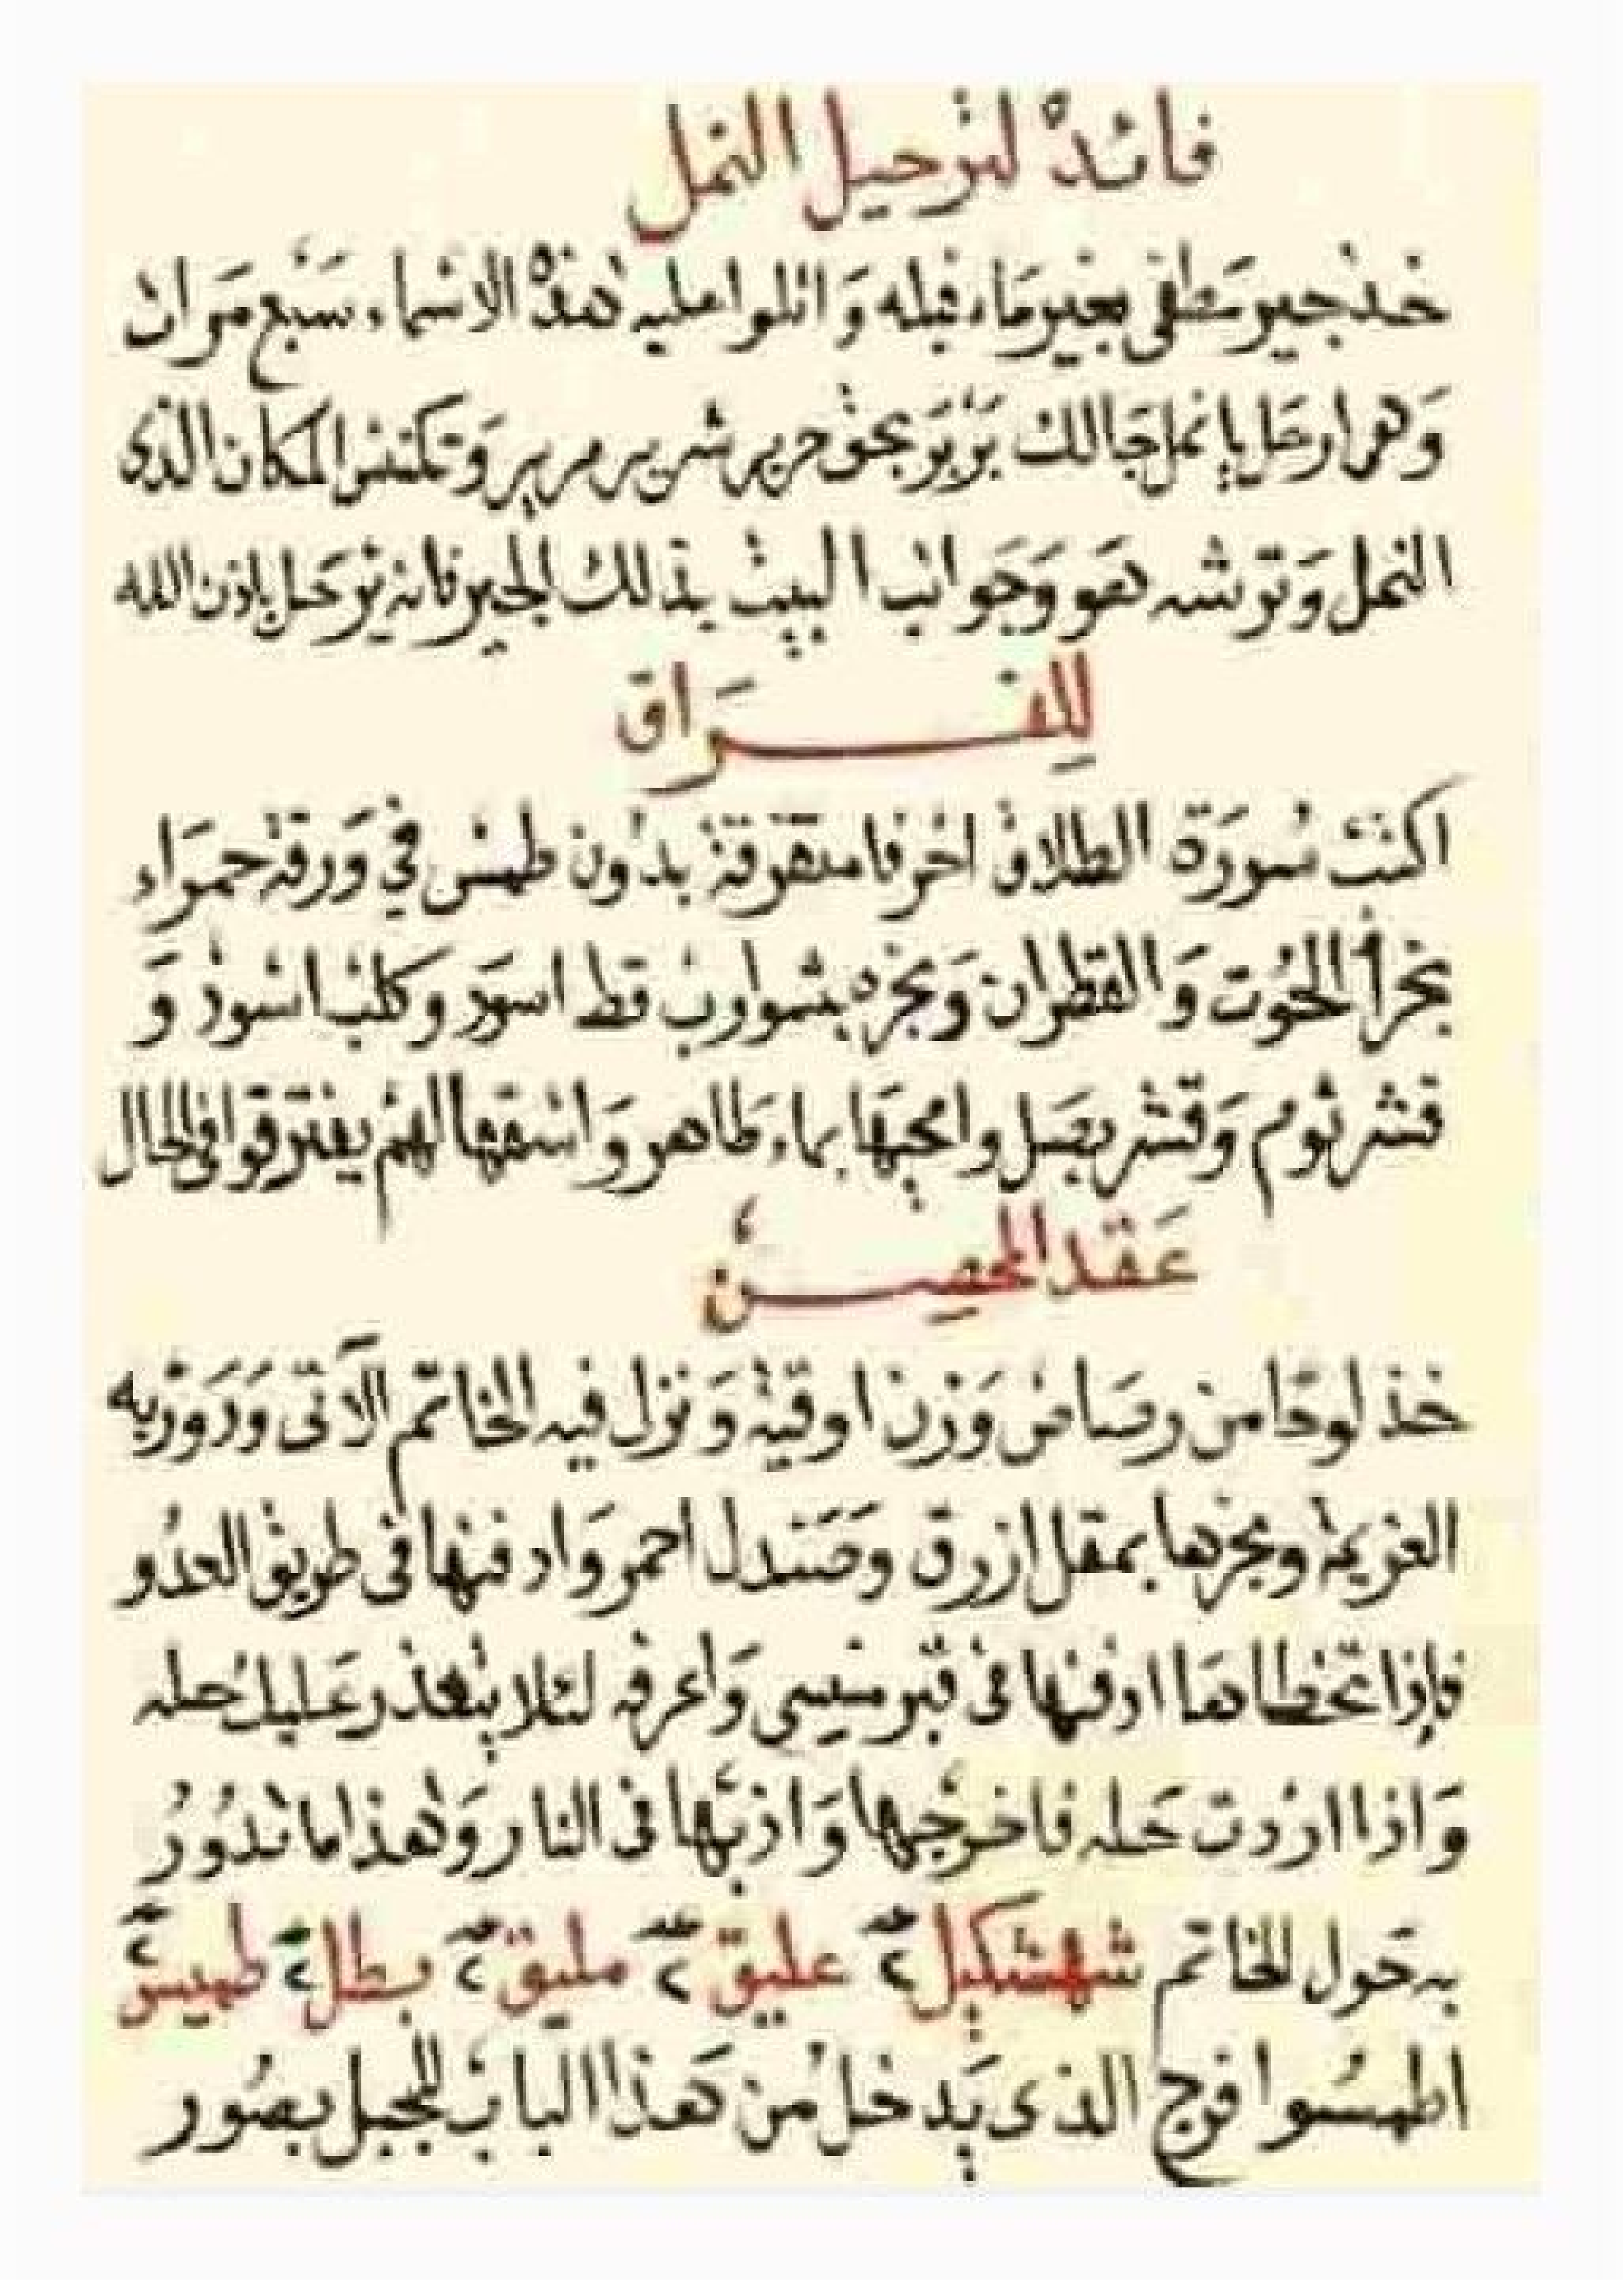 فائدة لترحيل النمل
خذ جير مطفى بغير ماء قبله وَاتلوا عليه هذه الاسْماء سَبْع مَرات
وَهى ارحَل يا نمل جَالك بَرْبَر بحق حرير شرير مرير وَتكنس المكان الذى
النمل وَترشه هو وَجَوانب البيت بذلك الجير فانه يَرحَل باذن الله
لِلفـــرَاق
اكتب سُورَة الطلاق احْرفا متفرقة بدُون طمس في وَرقة حمرَاء
بخرأ الحُوت وَالقطران وَبخره بشوارب قط اسوَد وكلب اسْود وَ
قشر ثوم وَقشر بصَل وامحيهَا بماء طاهر وَاسْقها لهم يفترقوا فى الحال
عَقد الحصِـــن
خذ لوحًا من رصَاص وَزن اوقية وَنزل فيه الخاتم الآتى وَدَوّر به
العزيمة وبخرها بمقل ازرق وصَندل احمر وَادفنها فى طريق العدُو
فإذا تخطاها ادفنها فى قبر منسي وَاعرفه لئلا يتعذر عَليك حله
وَاذا اردت حَله فاخرجهَا وَاذبْها فى النار وَهذا ما تدُورُ
به حَول الخاتم شهشكيل ٢ عليق ٢ مليق ٢ بطل ٢ طهيس ٢
اطمسُوا فرج الذى يَدخلُ من هَذا البَاب بجبل بصُور